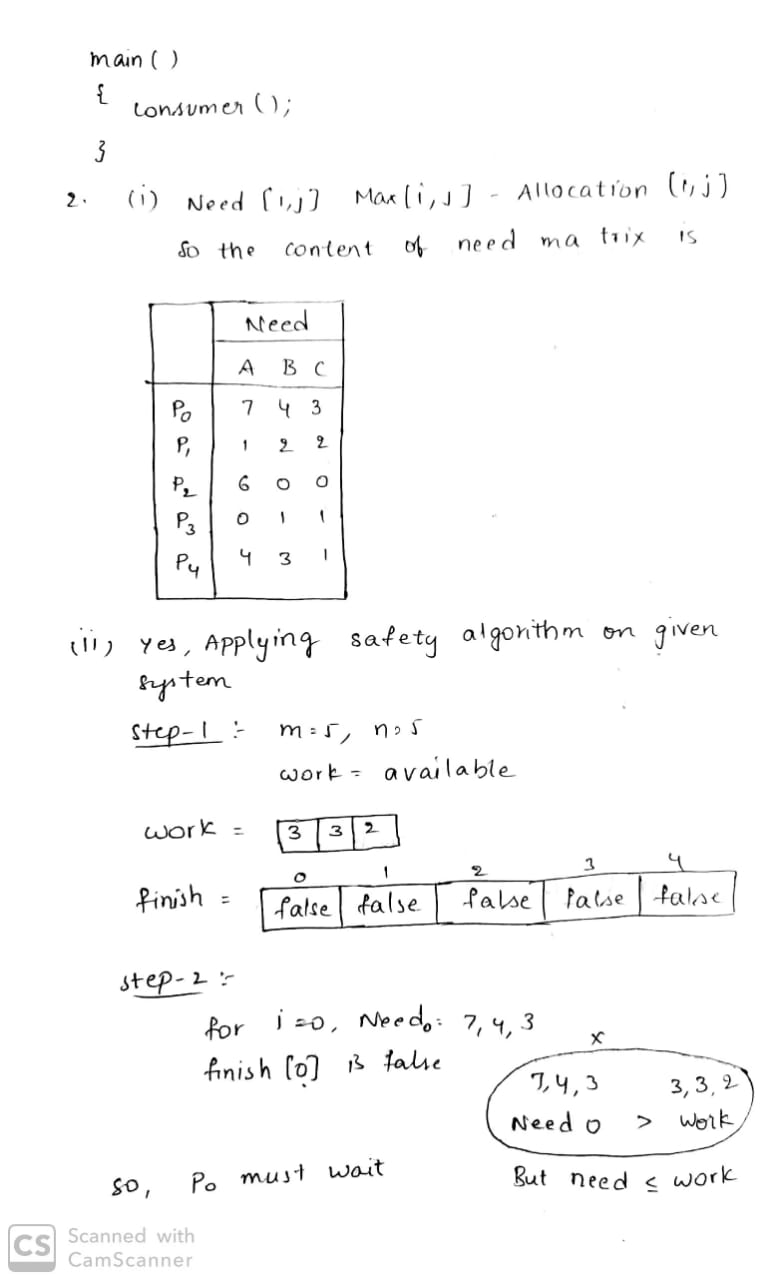 main ( )
{ consumer ( );
}
2. (i) Need [i,j] Max [i,j] - Allocation [i,j]
so the content of need ma trix is
Need
A B C
P0 7 4 3
P1 1 2 2
P2 6 0 0
P3 0 1 1
P4 4 3 1
(ii) yes, Applying safety algorithm on given
system
step-1 :- m=5, n=5
work = available
work = 3 3 2
0 1 2 3 4
finish = false false false false false
step-2 :-
for i=0, Need0: 7,4,3
finish [0] is false
x
7,4,3 3,3,2
Need 0 > work
so, P0 must wait But need ≤ work
CS Scanned with
CamScanner